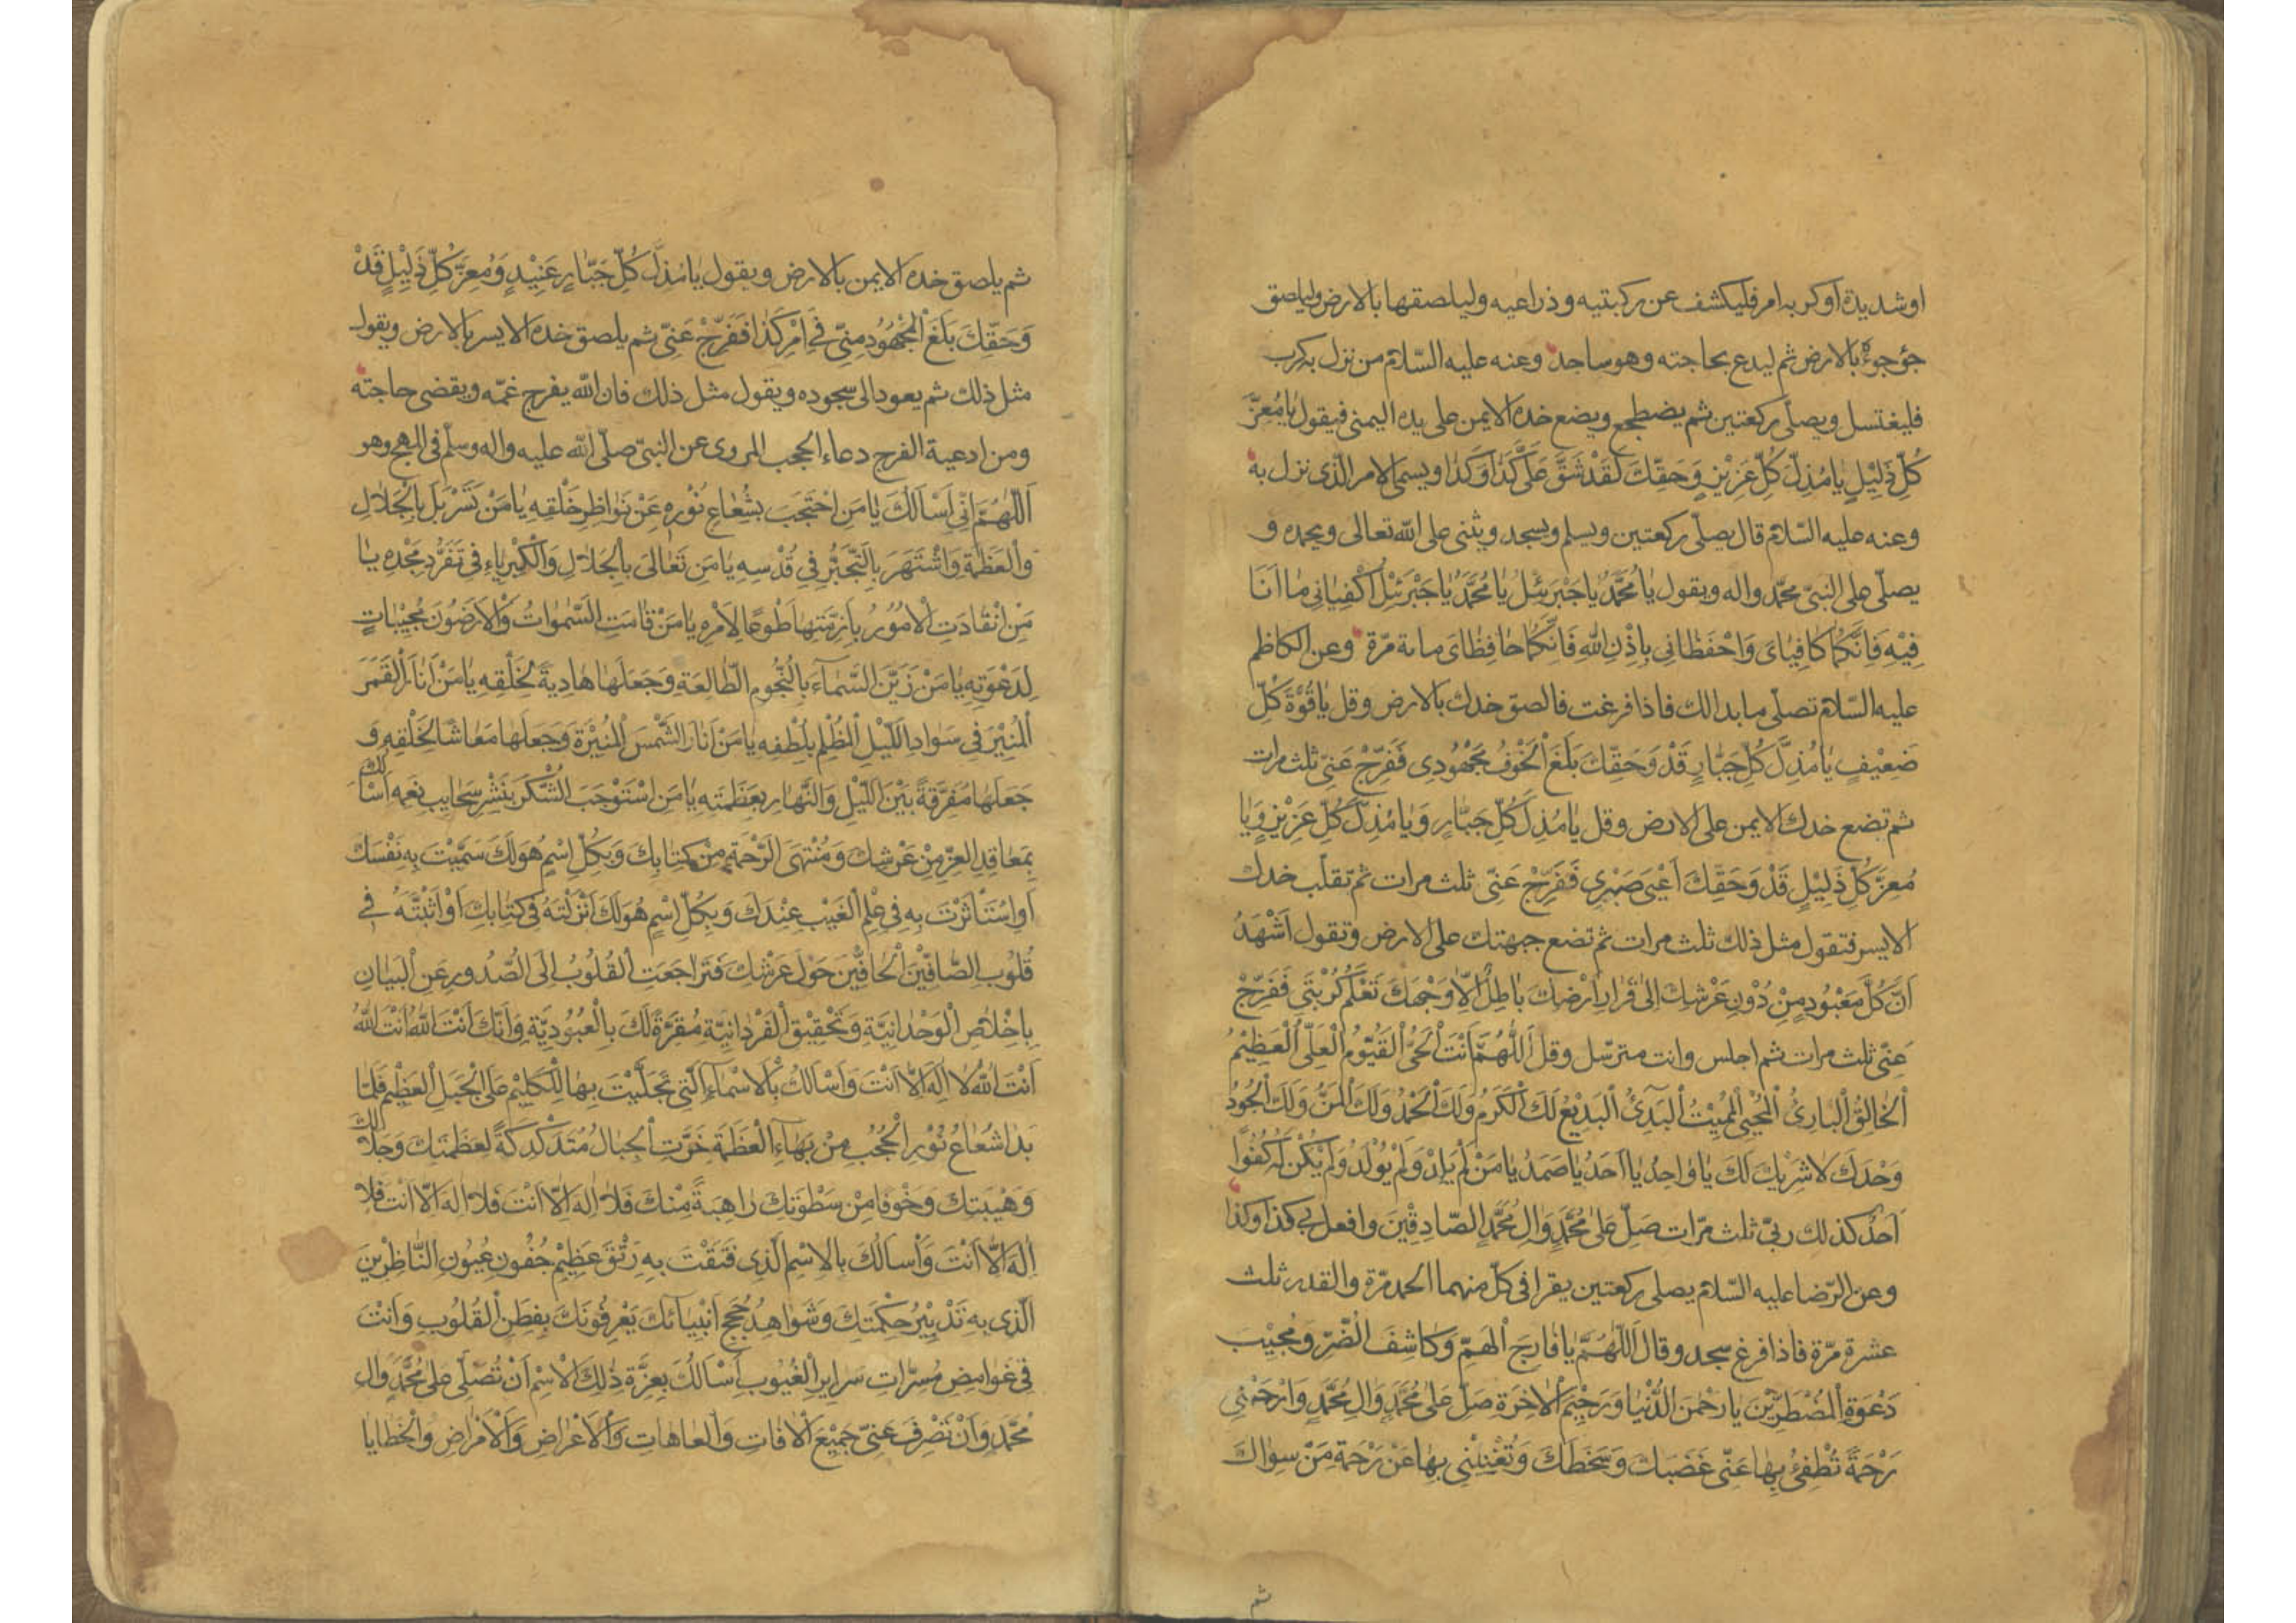 او شديدة او كربه امر فليكشف عن ركبتيه وذراعيه وليلصقها بالارض وليلصق
جؤجؤه بالارض ثم ليدع بحاجته وهو ساجد وعنه عليه السّلام من نزل به كرب
فليغتسل ويصلّى ركعتين ثم يضطجع ويضع خده الايمن على يده اليمنى فيقول يٰا مُعِزَّ
كُلِّ ذَلِيْلٍ يٰا مُذِلَّ كُلِّ عَزِيْزٍ وَحَقِّكَ لَقَدْ شَقَّ عَلَىَّ كَذٰا وَكَذٰا ويسمى الامر الّذى نزل به
وعنه عليه السّلام قال يصلّى ركعتين ويسلم ويسجد ويثنى على اللّه تعالى ويحمده و
يصلّى على النبىّ محمّد واله ويقول يٰا مُحَمَّدُ يٰا جَبْرَئِلُ يٰا مُحَمَّدُ يٰا جَبْرَئِلُ اَكْفِيٰانِى مٰا اَنَا
فِيْهِ فَاِنَّكُمٰا كٰافِيٰاىَ وَاحْفَظٰانِى بِاِذْنِ اللّٰهِ فَاِنَّكُمٰا حٰافِظٰاىَ مائة مرّة وعن الكاظم
عليه السّلام تصلّى ما بدا لك فاذا فرغت فالصق خدك بالارض وقل يٰا قُوَّةَ كُلِّ
ضَعِيْفٍ يٰا مُذِلَّ كُلِّ جَبّٰارٍ قَدْ وَحَقِّكَ بَلَغَ الْخَوْفُ مَجْهُوْدِى فَفَرِّجْ عَنِّى ثلث مرات
ثم تضع خدك الايمن على الارض وقل يٰا مُذِلَّ كُلِّ جَبّٰارٍ وَيٰا مُذِلَّ كُلِّ عَزِيْزٍ وَيٰا
مُعِزَّ كُلِّ ذَلِيْلٍ قَدْ وَحَقِّكَ اَعْيٰى صَبْرِى فَفَرِّجْ عَنِّى ثلث مرات ثم تقلّب خدك
الايسر فتقول مثل ذلك ثلث مرات ثم تضع جبهتك على الارض وتقول اَشْهَدُ
اَنَّ كُلَّ مَعْبُوْدٍ مِنْ دُوْنِ عَرْشِكَ اِلىٰ قَرٰارِ اَرْضِكَ بٰاطِلٌ اِلّاٰ وَجْهَكَ تَعْلَمُ كُرْبَتِى فَفَرِّجْ
عَنِّى ثلث مرات ثم اجلس وانت مترسّل وقل اَللّٰهُمَّ اَنْتَ الْحَىُّ الْقَيُّوْمُ الْعَلِىُّ الْعَظِيْمُ
الْخٰالِقُ الْبٰارِئُ الْمُحْيِى الْمُمِيْتُ الْبَدِئُ الْبَدِيْعُ لَكَ الْكَرَمُ وَلَكَ الْحَمْدُ وَلَكَ الْمَنُّ وَلَكَ الْجُوْدُ
وَحْدَكَ لاٰ شَرِيْكَ لَكَ يٰا وٰاحِدُ يٰا اَحَدُ يٰا صَمَدُ يٰا مَنْ لَمْ يَلِدْ وَلَمْ يُوْلَدْ وَلَمْ يَكُنْ لَهُ كُفُوًا
اَحَدٌ كذلك ربّى ثلث مرّات صَلِّ عَلىٰ مُحَمَّدٍ وَاٰلِ مُحَمَّدٍ الصّادِقِيْنَ وافعل بى كذا وكذا
وعن الرّضا عليه السّلام يصلى ركعتين يقرا فى كلّ منهما الحمد مرّة والقدر ثلث
عشرة مرّة فاذا فرغ سجد وقال اَللّٰهُمَّ يٰا فٰارِجَ الْهَمِّ وَكٰاشِفَ الضُّرِّ وَمُجِيْبَ
دَعْوَةِ الْمُضْطَرِّيْنَ يٰا رَحْمٰنَ الدُّنْيٰا وَرَحِيْمَ الْاٰخِرَةِ صَلِّ عَلىٰ مُحَمَّدٍ وَاٰلِ مُحَمَّدٍ وَارْحَمْنِى
رَحْمَةً تُطْفِئُ بِهٰا عَنِّى غَضَبَكَ وَسَخَطَكَ وَتُغْنِيْنِى بِهٰا عَنْ رَحْمَةِ مَنْ سِوٰاكَ
ثم
ثم يلصق خده الايمن بالارض ويقول يٰا مُذِلَّ كُلِّ جَبّٰارٍ عَنِيْدٍ وَمُعِزَّ كُلِّ ذَلِيْلٍ قَدْ
وَحَقِّكَ بَلَغَ الْمَجْهُوْدُ مِنِّى فِى اَمْرِ كَذٰا فَفَرِّجْ عَنِّى ثم يلصق خده الايسر بالارض ويقول
مثل ذلك ثم يعود الى سجوده ويقول مثل ذلك فان اللّه يفرج غمّه ويقضى حاجته
ومن ادعية الفرج دعاء الحجب المروى عن النبىّ صلّى اللّه عليه واله وسلّم فى المهج وهو
اَللّٰهُمَّ اِنِّى اَسْاَلُكَ يٰا مَنِ احْتَجَبَ بِشُعٰاعِ نُوْرِهِ عَنْ نَوٰاظِرِ خَلْقِهِ يٰا مَنْ تَسَرْبَلَ بِالْجَلاٰلِ
وَالْعَظَمَةِ وَاشْتَهَرَ بِالتَّجَبُّرِ فِى قُدْسِهِ يٰا مَنْ تَعٰالىٰ بِالْجَلاٰلِ وَالْكِبْرِيٰاءِ فِى تَفَرُّدِ مَجْدِهِ يٰا
مَنِ انْقٰادَتِ الْاُمُوْرُ بِاَزِمَّتِهٰا طَوْعًا لِاَمْرِهِ يٰا مَنْ قٰامَتِ السَّمٰوٰاتُ وَالْاَرَضُوْنَ مُجِيْبٰاتٍ
لِدَعْوَتِهِ يٰا مَنْ زَيَّنَ السَّمٰاءَ بِالنُّجُوْمِ الطّٰالِعَةِ وَجَعَلَهٰا هٰادِيَةً لِخَلْقِهِ يٰا مَنْ اَنٰارَ الْقَمَرَ
الْمُنِيْرَ فِى سَوٰادِ اللَّيْلِ الْمُظْلِمِ بِلُطْفِهِ يٰا مَنْ اَنٰارَ الشَّمْسَ الْمُنِيْرَةَ وَجَعَلَهٰا مَعٰاشًا لِخَلْقِهِ وَ
جَعَلَهٰا مُفَرِّقَةً بَيْنَ اللَّيْلِ وَالنَّهٰارِ بِعَظَمَتِهِ يٰا مَنِ اسْتَوْجَبَ الشُّكْرَ بِنَشْرِ سَحٰايِبِ نِعَمِهِ اَسْاَلُكَ
بِمَعٰاقِدِ الْعِزِّ مِنْ عَرْشِكَ وَمُنْتَهَى الرَّحْمَةِ مِنْ كِتٰابِكَ وَبِكُلِّ اِسْمٍ هُوَ لَكَ سَمَّيْتَ بِهِ نَفْسَكَ
اَوِ اسْتَأْثَرْتَ بِهِ فِى عِلْمِ الْغَيْبِ عِنْدَكَ وَبِكُلِّ اِسْمٍ هُوَ لَكَ اَنْزَلْتَهُ فِى كِتٰابِكَ اَوْ اَثْبَتَّهُ فِى
قُلُوْبِ الصّٰافِّيْنَ الْحٰافِّيْنَ حَوْلَ عَرْشِكَ فَتَرٰاجَعَتِ الْقُلُوْبُ اِلَى الصُّدُوْرِ عَنِ الْبَيٰانِ
بِاِخْلاٰصِ الْوَحْدٰانِيَّةِ وَتَحْقِيْقِ الْفَرْدٰانِيَّةِ مُقِرَّةً لَكَ بِالْعُبُوْدِيَّةِ وَاَنَّكَ اَنْتَ اللّٰهُ اَنْتَ اللّٰهُ
اَنْتَ اللّٰهُ لاٰ اِلٰهَ اِلّاٰ اَنْتَ وَاَسْاَلُكَ بِالْاَسْمٰاءِ الَّتِى تَجَلَّيْتَ بِهٰا لِلْكَلِيْمِ عَلَى الْجَبَلِ الْعَظِيْمِ فَلَمّٰا
بَدٰا شُعٰاعُ نُوْرِ الْحُجُبِ مِنْ بَهٰاءِ الْعَظَمَةِ خَرَّتِ الْجِبٰالُ مُتَدَكْدِكَةً لِعَظَمَتِكَ وَجَلاٰلِكَ
وَهَيْبَتِكَ وَخَوْفًا مِنْ سَطْوَتِكَ رٰاهِبَةً مِنْكَ فَلاٰ اِلٰهَ اِلّاٰ اَنْتَ فَلاٰ اِلٰهَ اِلّاٰ اَنْتَ فَلاٰ
اِلٰهَ اِلّاٰ اَنْتَ وَاَسْاَلُكَ بِالْاِسْمِ الَّذِى فَتَقْتَ بِهِ رَتْقَ عَظِيْمِ جُفُوْنِ عُيُوْنِ النّٰاظِرِيْنَ
الَّذِى بِهِ تَدْبِيْرُ حِكْمَتِكَ وَشَوٰاهِدُ حُجَجِ اَنْبِيٰائِكَ يَعْرِفُوْنَكَ بِفِطَنِ الْقُلُوْبِ وَاَنْتَ
فِى غَوٰامِضِ مُسِرّٰاتِ سَرٰايِرِ الْغُيُوْبِ اَسْاَلُكَ بِعِزَّةِ ذٰلِكَ الْاِسْمِ اَنْ تُصَلِّىَ عَلىٰ مُحَمَّدٍ وَاٰلِ
مُحَمَّدٍ وَاَنْ تَصْرِفَ عَنِّى جَمِيْعَ الْاٰفٰاتِ وَالْعٰاهٰاتِ وَالْاَعْرٰاضِ وَالْاَمْرٰاضِ وَالْخَطٰايٰا